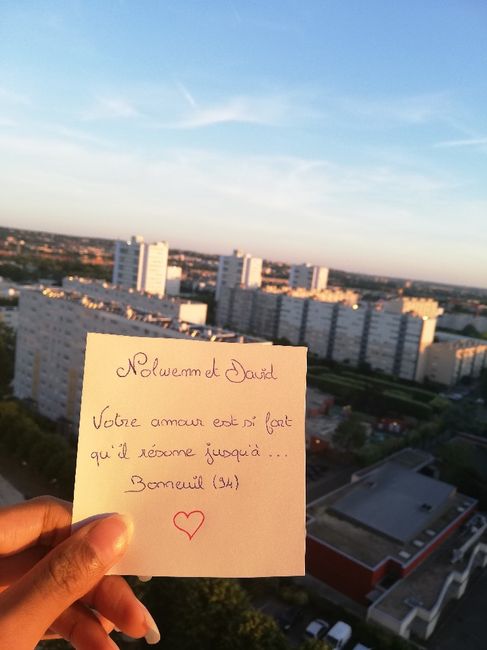 Nolwenn et David
Votre amour est si fort
qu'il résume jusqu'à ...
Bonneuil (94)